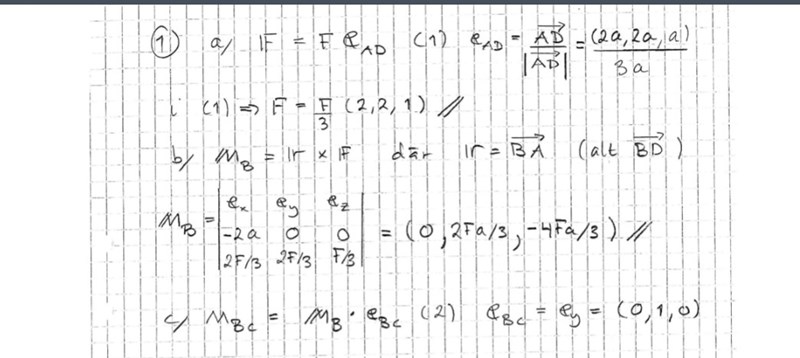 ① a/ 𝐅 = F 𝐞AD (1) 𝐞AD = AD⃗ / |AD⃗| = (2a, 2a, a) / 3a
i (1) ⇒ F = F/3 (2,2,1) //
b/ 𝐌B = 𝐫 × 𝐅 där 𝐫 = BA⃗ (alt BD⃗)
𝐌B = | 𝐞x 𝐞y 𝐞z |
| -2a 0 0 | = (0, 2Fa/3, -4Fa/3) //
| 2F/3 2F/3 F/3 |
c/ MBC = 𝐌B · 𝐞BC (2) 𝐞BC = 𝐞y = (0,1,0)